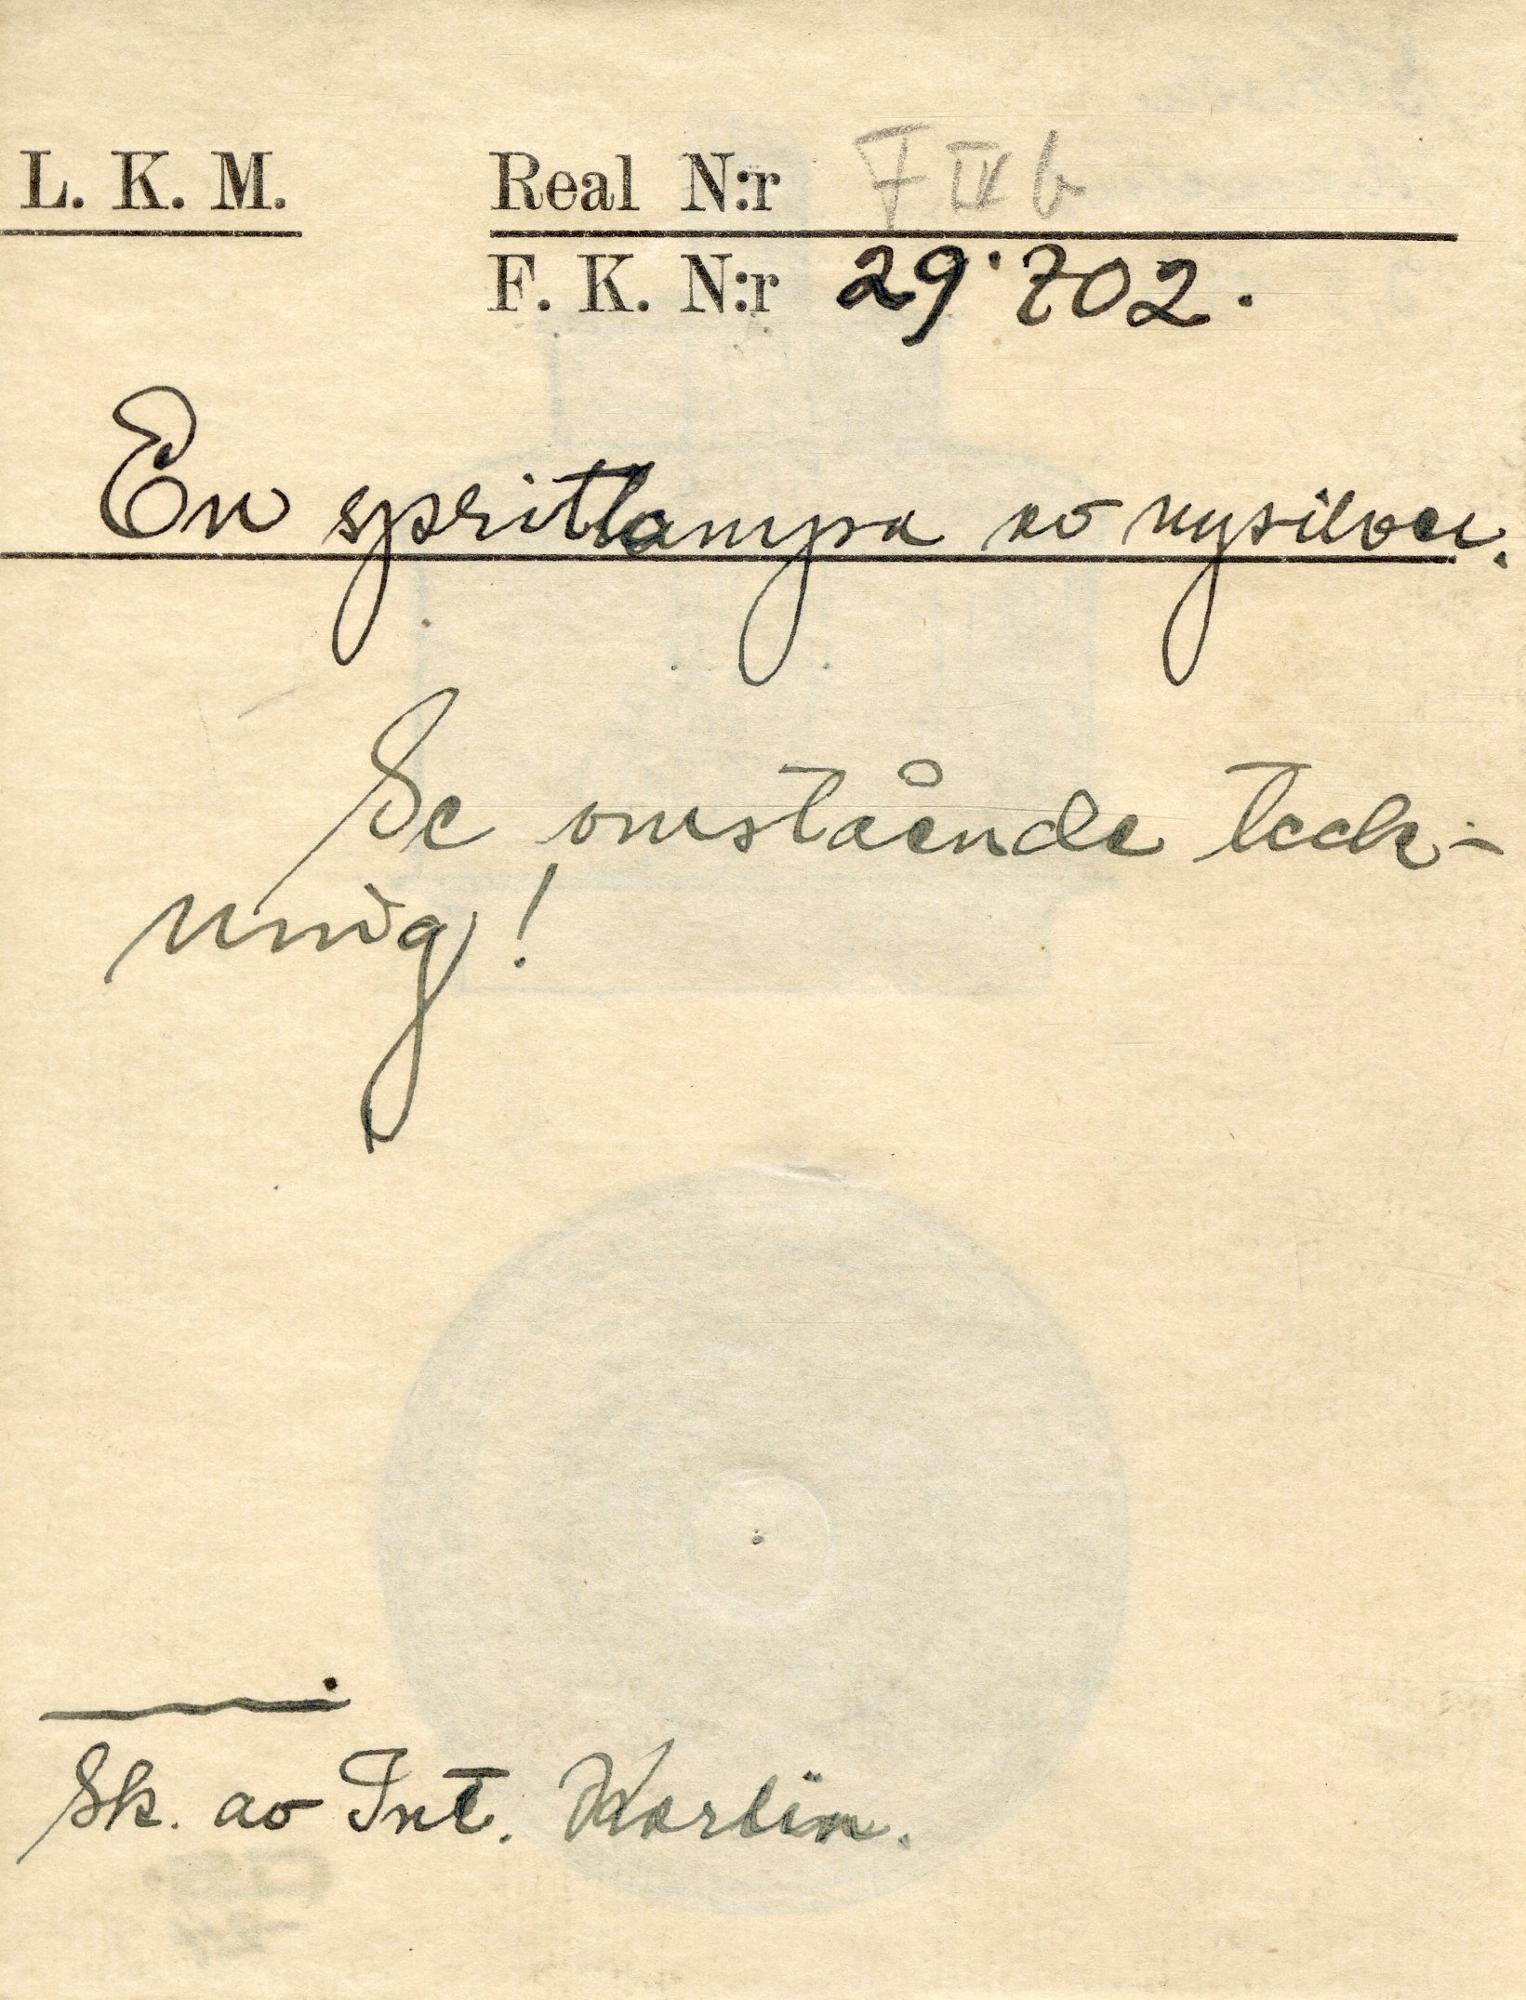 L. K. M. Real N:r F IV b
F. K. N:r 29·702.
En spritlampa av nysilver.
Se omstående teck-
ning!
Sk. av Int. Karlin.